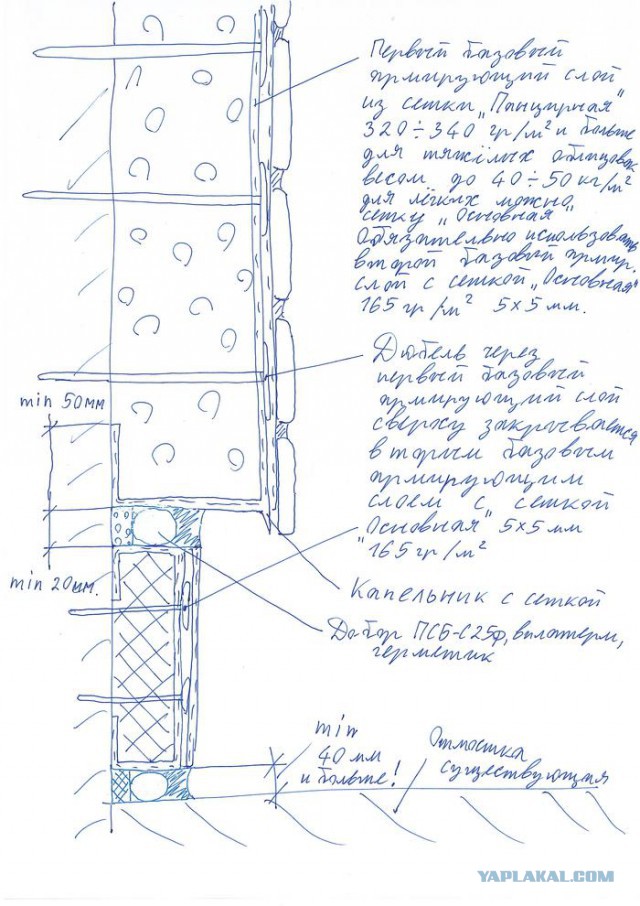 Первый базовый
армирующий слой
из сетки „Панцирная"
320÷340 гр/м² и больше
для тяжёлых облицовок
весом до 40÷50 кг/м²
для лёгких можно
сетку „Основная"
Обязательно использовать
второй базовый армир.
слой с сеткой „Основная"
165 гр/м² 5×5 мм.
Дюбель через
первый базовый
армирующий слой
сверху закрывается
вторым базовым
армирующим
слоем с сеткой
"Основная" 5×5 мм
165 гр/м²
min 50мм
min 20мм.
Капельник с сеткой
Добор ПСБ-С25ф, вилатерм,
герметик
min
40 мм
и больше!
Отмостка
существующая
YAPLAKAL.COM